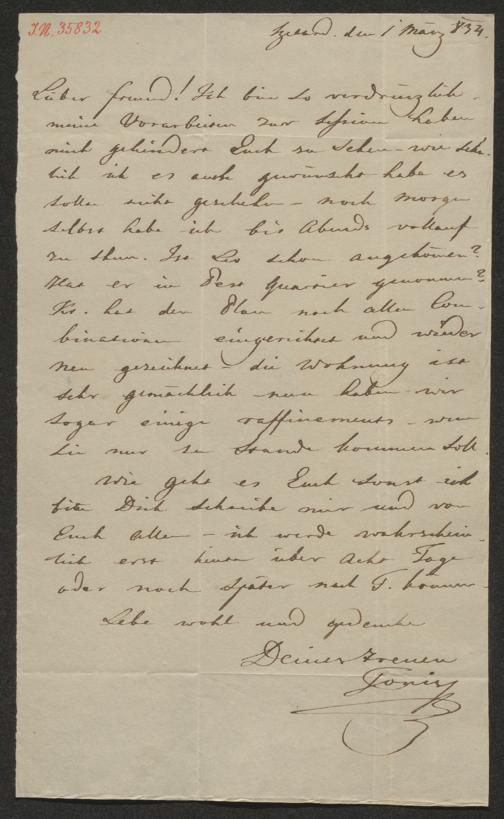 I.N. 35832
Szexard. den 1 März 834.
Lieber Freund! Ich bin so verdrüzlich -
meine Vorarbeiten zur Session haben
mich gehindert Euch zu sehen - wie sehn-
lich ich es auch gewünscht habe es
sollte nicht geschehen - noch morgen
selbst habe ich bis Abends vollauf
zu thun. Ist Leo schon angekomen?
Hat er in Pest Quartier genommen?
Kr. hat den Plan nach allen Com-
binationen eingerichtet und wieder
neu gezeichnet - die Wohnung ist
sehr gemächlich nun haben wir
sogar einige raffinements - wen
sie nur zu Stande kommen soll.
Wie geht es Euch sonst ich
bitte Dich schreibe mir und von
Euch allen - ich werde wahrschein-
lich erst heute über acht Tage
oder noch später nach T. komen.
Lebe wohl und gedenke
Deines treuen